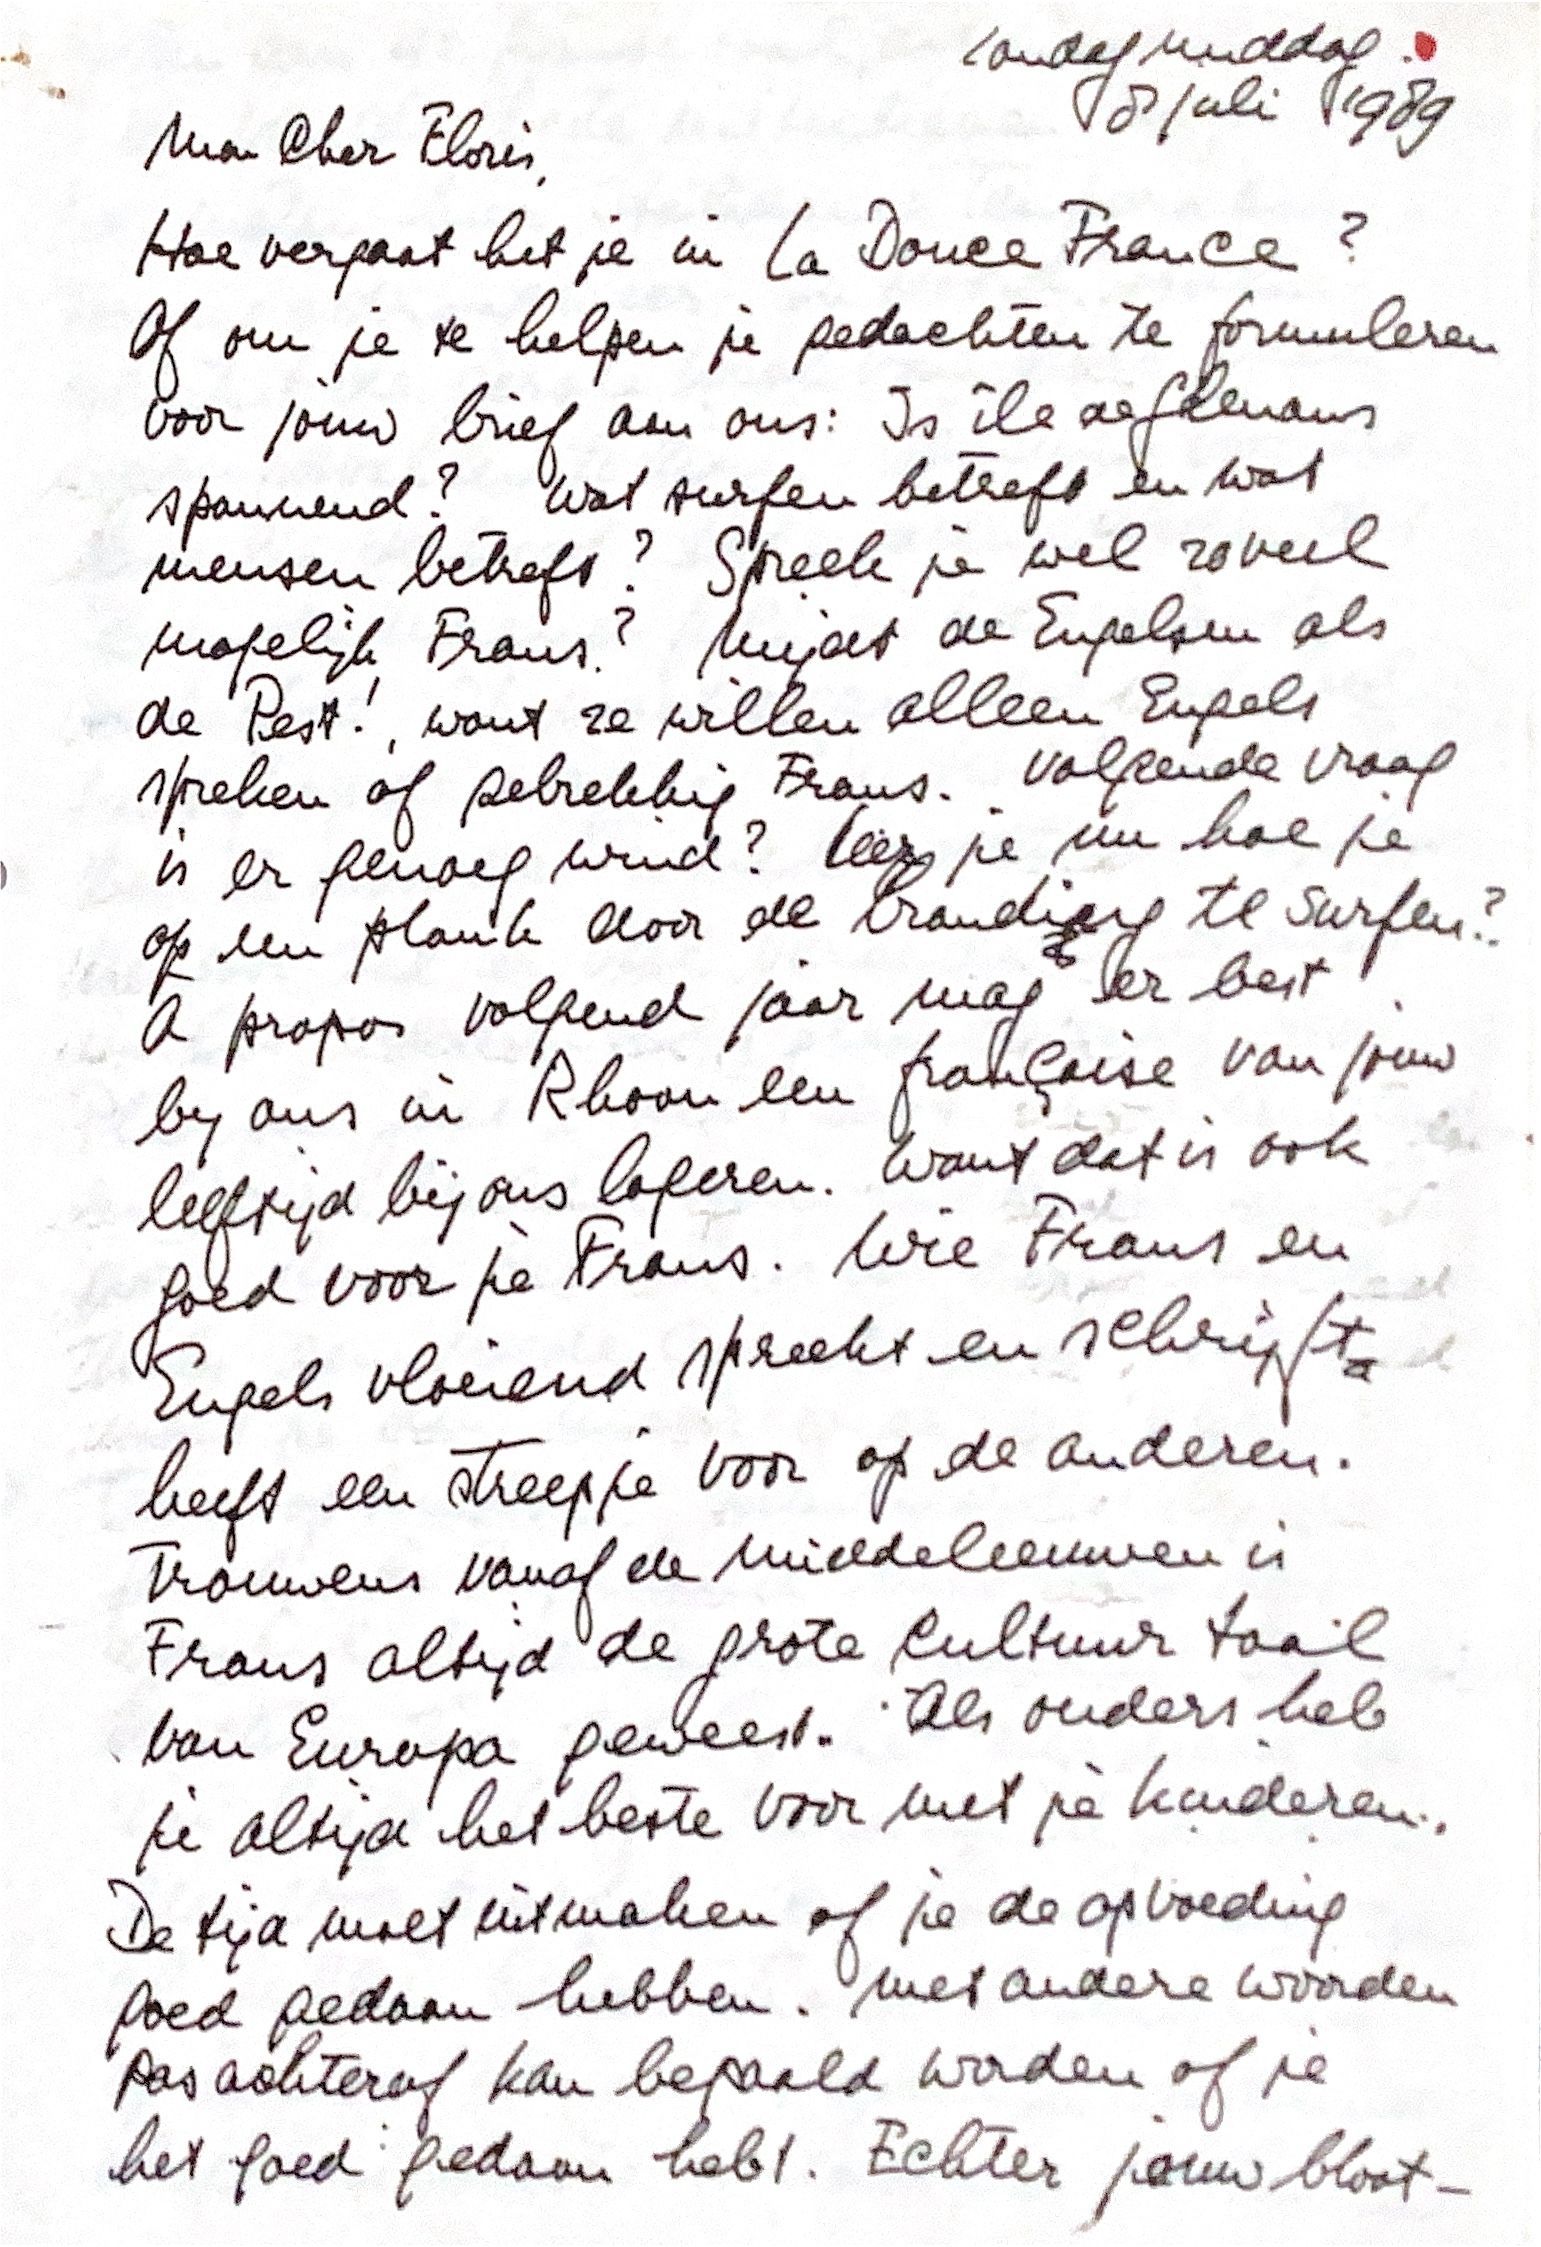 zondag middag.
8 juli 1989
Mon Cher Floris,
Hoe vergaat het je in La Douce France?
Of om je te helpen je gedachten te formuleren
voor jouw brief aan ons: Is île de
spannend? Wat surfen betreft en wat
mensen betreft? Spreek je wel zoveel
mogelijk Frans? Mijdt de Engelsen als
de Pest!, want ze willen alleen Engels
spreken of gebrekkig Frans. Volgende vraag
is er genoeg wind? Leer je nu hoe je
op een plank door de branding te surfen?
A propos volgend jaar mag er best
by ons in Rhoon een française van jouw
leeftijd bij ons logeren. Want dat is ook
goed voor je Frans. Wie Frans en
Engels vloeiend spreekt en schrijft
heeft een streepje voor op de anderen.
Trouwens vanaf de Middeleeuwen is
Frans altijd de grote cultuur taal
van Europa geweest. Als ouders heb
je altijd het beste voor met je kinderen.
De tijd moet uitmaken of je de opvoeding
goed gedaan hebben. Met andere woorden
pas achteraf kan bepaald worden of je
het goed gedaan hebt. Echter jouw bloot-